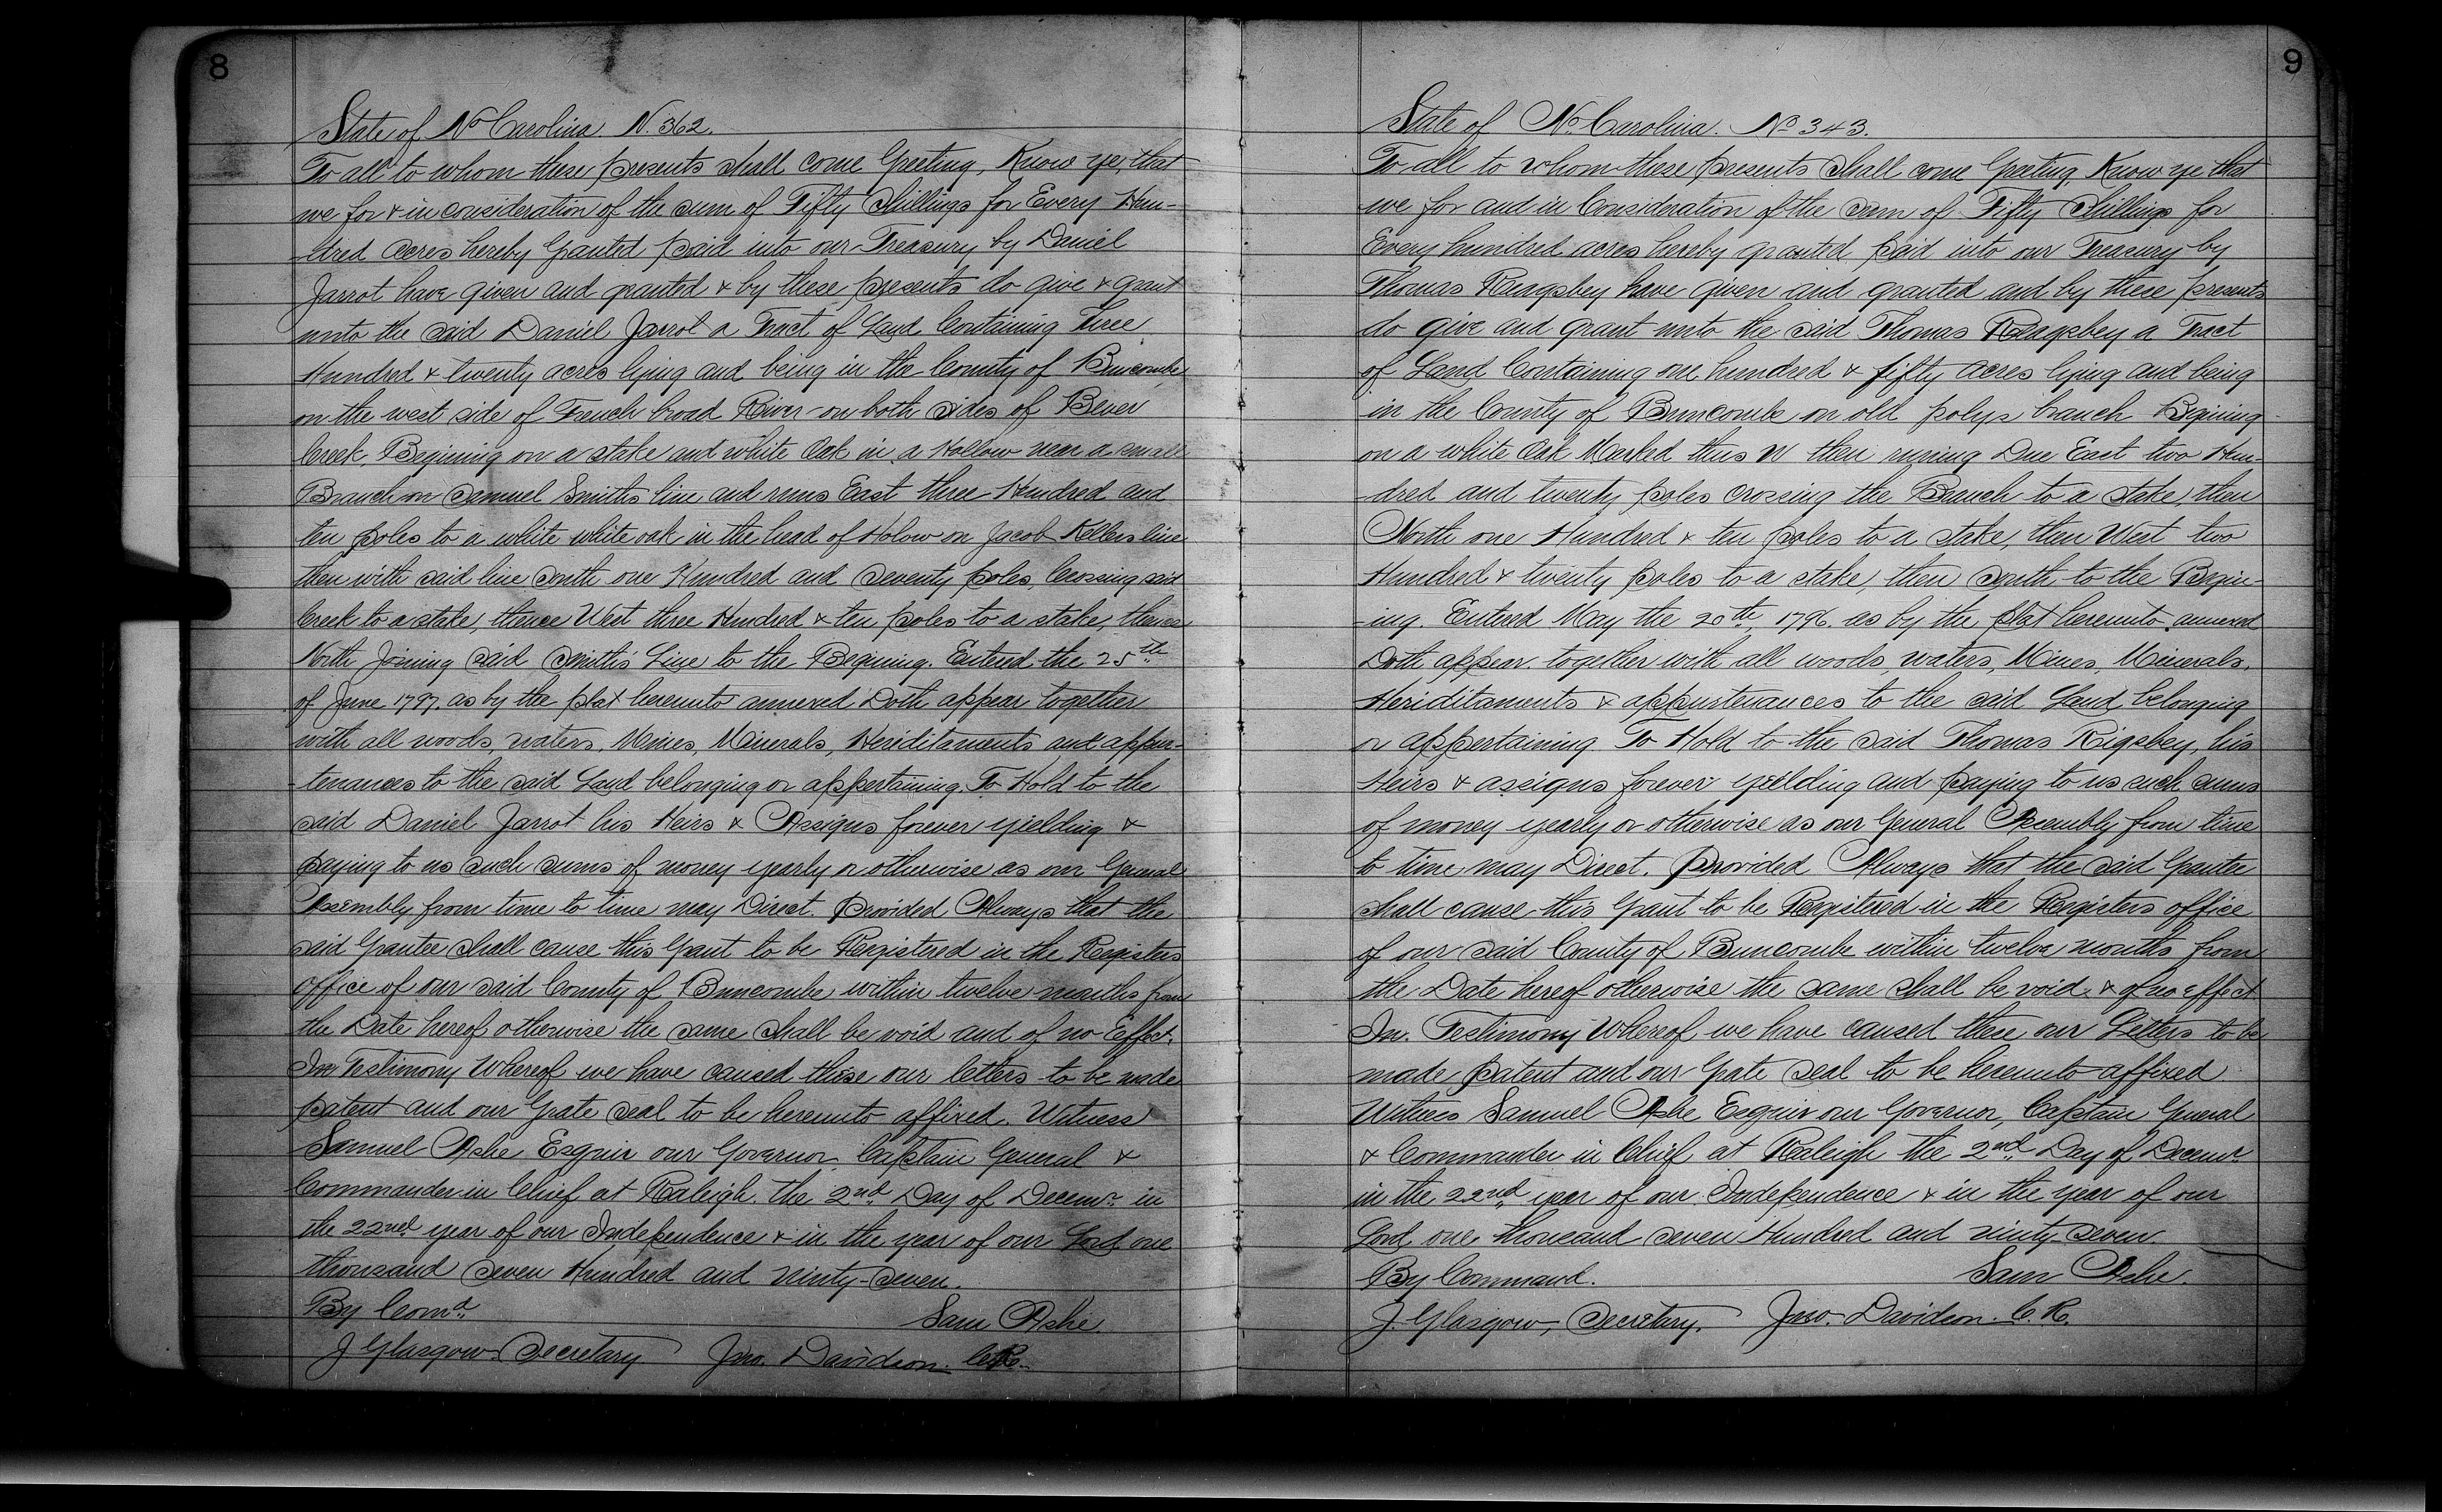 8
State of No Carolina N. 362.
To all to whom these presents shall come Greeting, Know ye, that
we for & in consideration of the sum of Fifty Shillings for Every Hun-
-dred acres hereby Granted paid into our Treasury by Daniel
Jarrot have given and granted & by these presents do give & grant
unto the said Daniel Jarrot a Tract of Land Containing Three
Hundred & twenty acres lying and being in the County of Buncombe
on the west side of French broad River on both sides of Bever
Creek, Begining on a stake and white Oak in a Hollow near a small
Branch on Samuel Smiths line and runs East three Hundred and
ten poles to a white white oak in the head of Holow on Jacob Kellers line
then with said line South one Hundred and Seventy poles, Crossing said
Creek to a stake, thence West three Hundred & ten poles to a stake, thence
North Joining said Smith's Line to the Begining. Entered the 25th
of June 1797. as by the plat hereunto annexed Doth appear together
with all woods, waters, Mines, Minerals, Heriditaments and appur-
-tenances to the said Land belonging or appertaining. To Hold to the
said Daniel Jarrot his Heirs & Assigns forever yielding &
paying to us such sums of money yearly or otherwise as our General
Assembly from time to time may Direct. provided Always that the
said Grantee shall cause this Grant to be Registered in the Registers
office of our said County of Buncombe within twelve months from
the Date hereof otherwise the same shall be void and of no Effect.
In Testimony Whereof we have caused these our letters to be made
patent and our Grate seal to be hereunto affixed. Witness
Samuel Ashe Esquir our Governor Captain General &
Commander in Chief at Raleigh the 2nd Day of Decemr. in
the 22nd year of our Independence & in the year of our Lord one
thousand Seven Hundred and Ninty-Seven.
By Comd. Sam Ashe.
J Glasgow Secretary Jno. Davidson. C.R.
9
State of No. Carolina. No 343.
To all to whom these presents shall come Greeting, Know ye that
we for and in Consideration of the sum of Fifty Shillings for
Every hundred acres hereby granted paid into our Treasury by
Thomas Rengsbey have given and granted and by these presents
do give and grant unto the said Thomas Rengsbey a Tract
of Land Containing one hundred & fifty acres lying and being
in the County of Buncombe on old polys branch Begining
on a white Oak Marked thus W then runing Due East two Hun-
-dred and twenty poles crossing the Branch to a stake, then
North one Hundred & ten poles to a stake, then West two
Hundred & twenty poles to a stake, then South to the Begin-
-ing. Entered May the 20th 1796. as by the plat hereunto annexed
Doth appear. together with all woods, waters, Mines, Minerals,
Heriditaments & appurtenances to the said Land belonging
or appertaining To Hold to the said Thomas Rigsbey, his
Heirs & assigns forever yeilding and paying to us such sums
of money yearly or otherwise as our General Assembly from time
to time may Direct. Provided Always that the said Grantee
shall cause this Grant to be Registered in the Registers office
of our said County of Buncombe within twelve months from
the Date hereof otherwise the same shall be void & of no effect
In Testimony Whereof we have caused these our Letters to be
made patent and our Grate seal to be hereunto affixed
Witness Samuel Ashe Esquir our Governor, Captain General
& Commander in Chief at Raleigh the 2nd Day of Decemr.
in the 22nd year of our Independence & in the year of our
Lord one thousand seven Hundred and ninty-seven
By Command. Sam Ashe.
J. Glasgow, Secretary. Jno. Davidson. C. R.